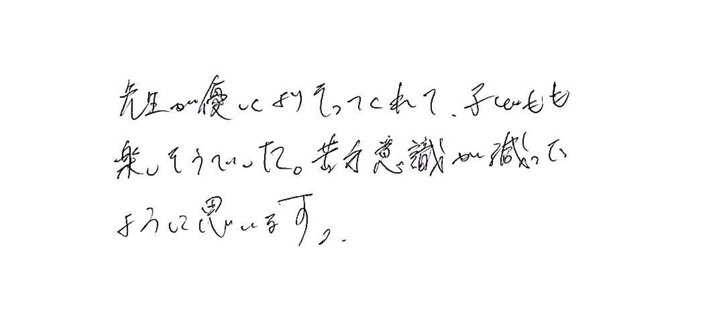 先生が優しくよりそってくれて、子どもも
楽しそうでした。苦手意識が減った
ように思います。